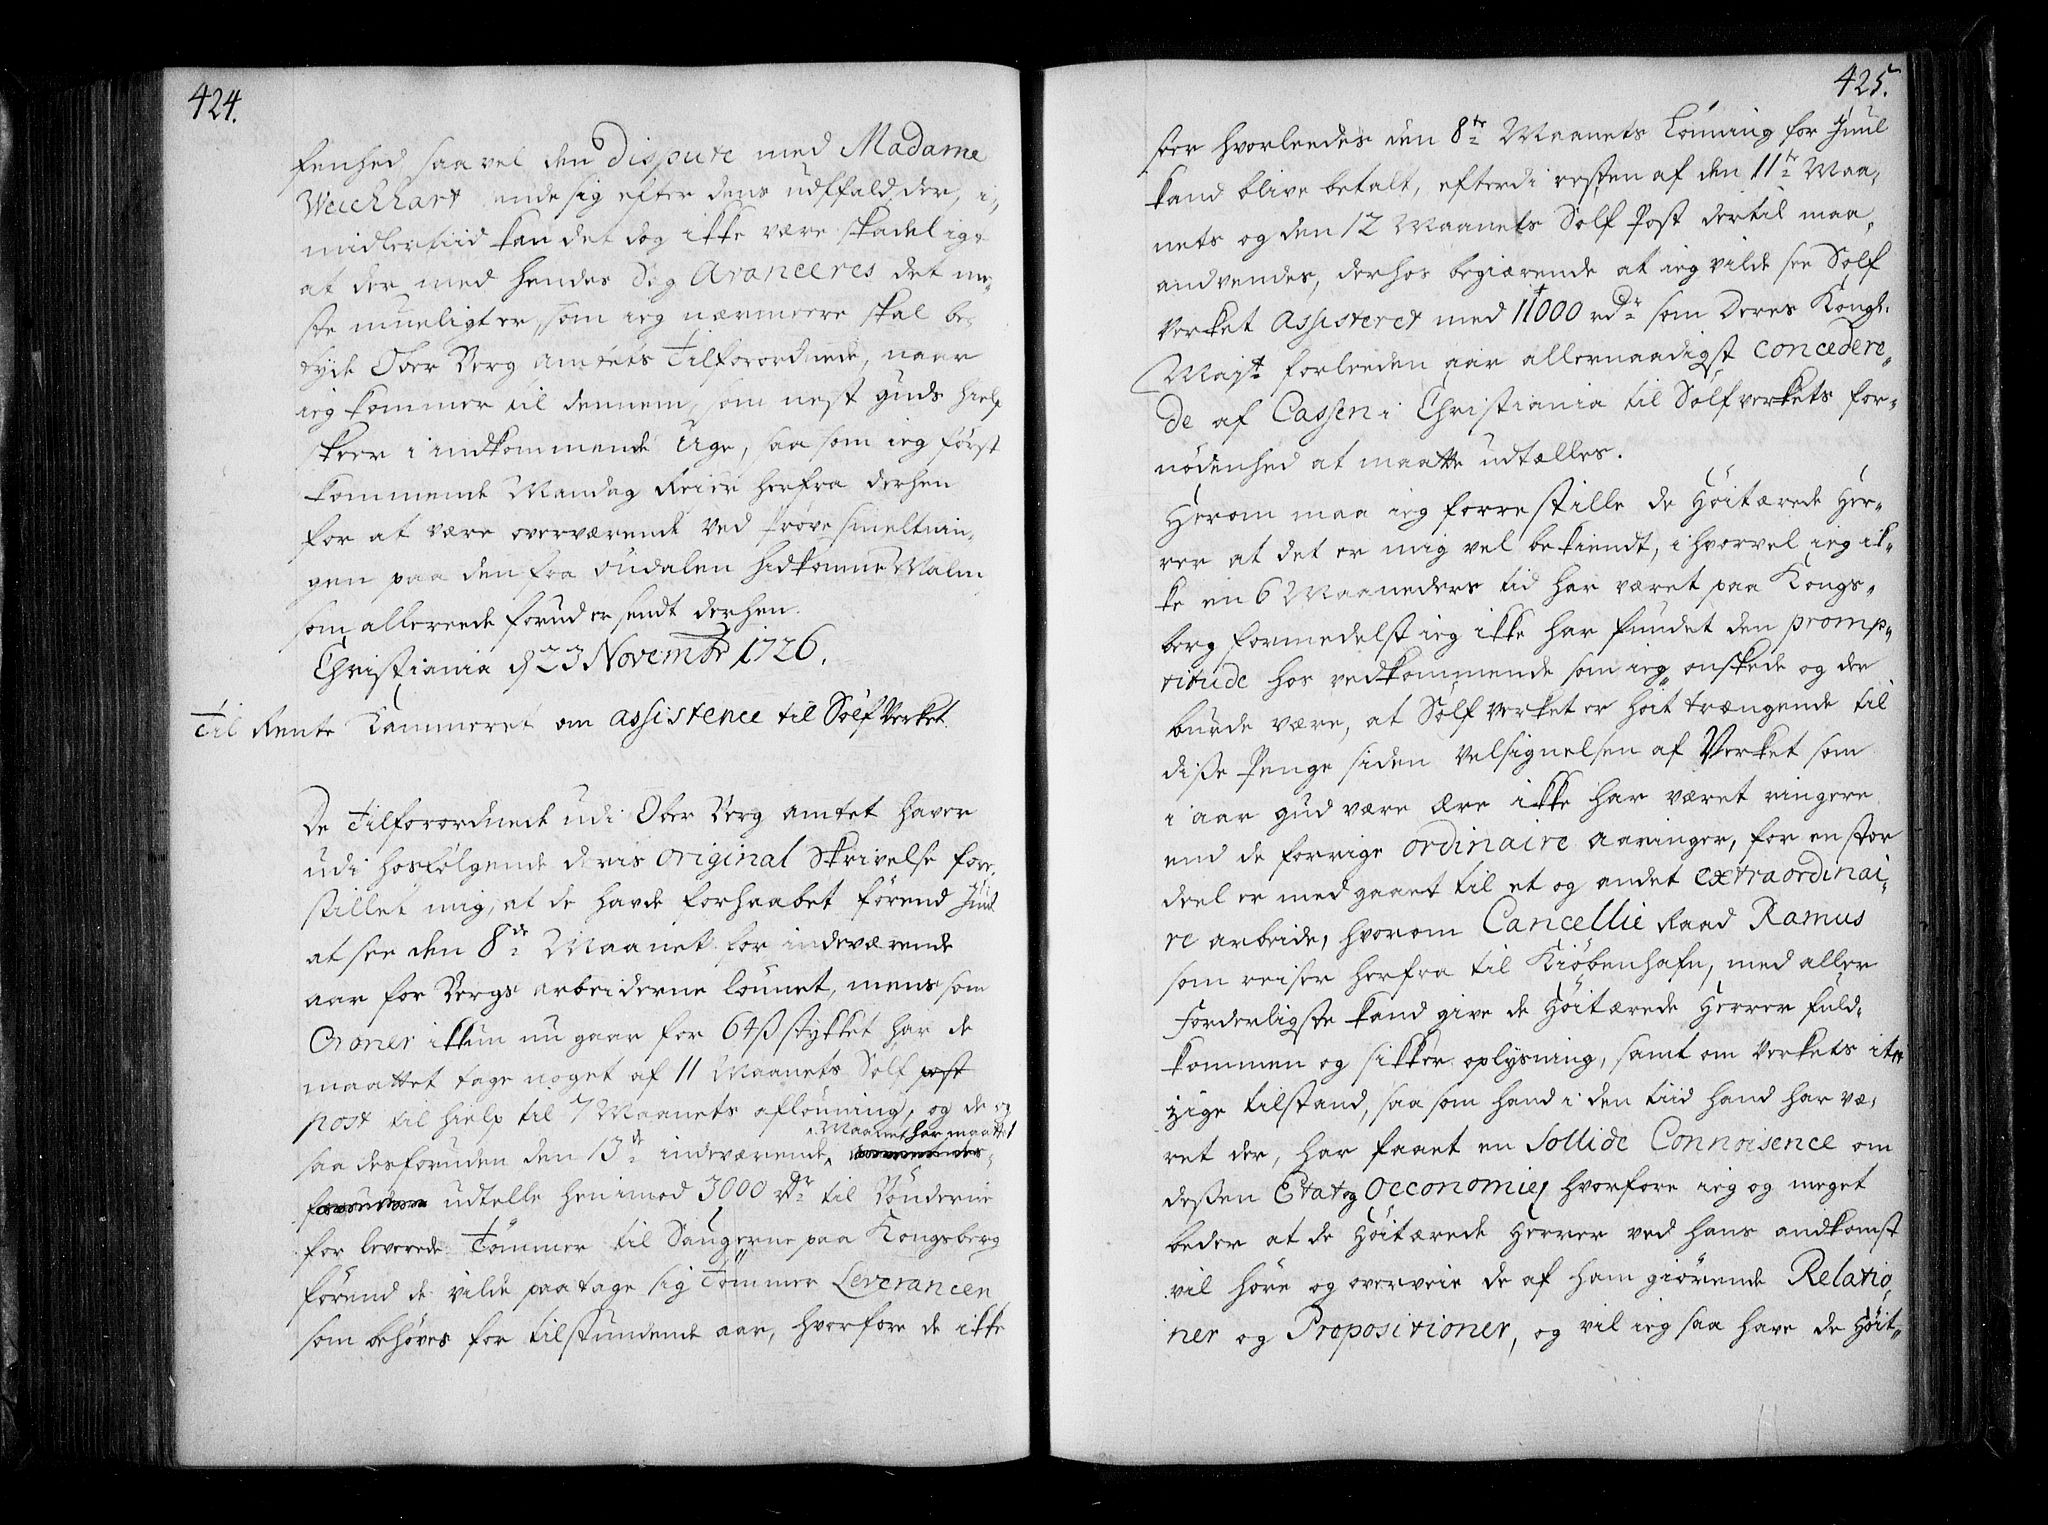 424.
fenhed saa vel den Dispute med Madame
Weichhart ende sig efter dens udffald der, i„
midlertiid kan det dog ikke være skadeligt
at der med hendes Sag Avanceres det me„
ste mueligt er, som ieg nærmere skal be„
tyde Ober Berg Amtets Tilforordnede, naar
ieg kommer til dennem, som nest Guds hielp
skeer i indkommende Uge, saa som ieg først
kommende Mandag Reiser herfra derhen
for at være overværende ved Prøve Smeltnin„
gen paa den fra Oudalen hidkomne Malm
som allereede forud er sendt derhen.
Christiania d 23 Novembr 1726.
Til Rente Kammeret om assistence til Sølf Verket.
De Tilforordnede udi Ober Berg Amtet haver
udi hosfølgende deris original Skrivelse fore„
stillet mig, at de havde forhaabet førend Juul
at see den 8de Maanet for indeværende
aar for Bergs arbeiderne lønnet, mens som
Croner ikkun nu gaar for 64ß stykket har de
maattet tage noget af 11 Maanets Sølf post
post til hielp til 7 Maanets aflønning, og de og
Maanet har maattet
saa desforuden den 13de indeværende
udtelle henimod 3000 rdr til Bønderne
for leverede Tømmer til Saugerne paa Kongsberg
førend de vilde paatage sig Tømmer Leverancen
som behøves for tilstundende aar, hvorfore de ikke
425.
seer hvorleedes den 8de Maanets Lønning for Juul
kand blive betalt, efterdi resten af den 11te Maa„
nets og den 12 Maanets Sølf Post dertil maa
andvendes, derhos begiærende at ieg vilde see Sølf
Verket Assisteret med 11000 rdr som Deres Kongl.
Mayt forleeden aar allernaadigst concedere„
de af Cassen i Christiania til Sølfverkets for„
nødenhed at maatte udtælles.
Herom maa ieg forrestille de Høitærede Her„
rer at det er mig vel bekiendt, i hvorvel ieg ik„
ke en 6 Maaneders tid har været paa Kongs„
berg formedelst ieg ikke har fundet den promp„
titude hos vedkommende som ieg ønskede og der
burde være, at Sølfverket er høit trængende til
disse Penge siden Velsignelsen af Verket som
i aar Gud være Ære ikke har været ringere
end de forrige ordinaire Aaringer, for en stor
deel er medgaaet til et og andet extraordinai„
re arbeide, hvorom Cancellie Raad Ramus
som reiser herfra til Kiøbenhafn, med aller
Forderligste kand give de Høitærede Herrer fuld„
kommen og sikker oplysning, samt om Verkets it„
zige tilstand, saa som hand i den tiid hand har væ„
ret der, har faaet en Sollide Connoisence om
dessen Etat og Oeconomie, hvorfore ieg og meget
beder at de Høitærede Herrer ved hans andkomst
vil høre og overveie de af ham giørende Relatio„
ner og Propositioner, og vil ieg saa have de Høit„